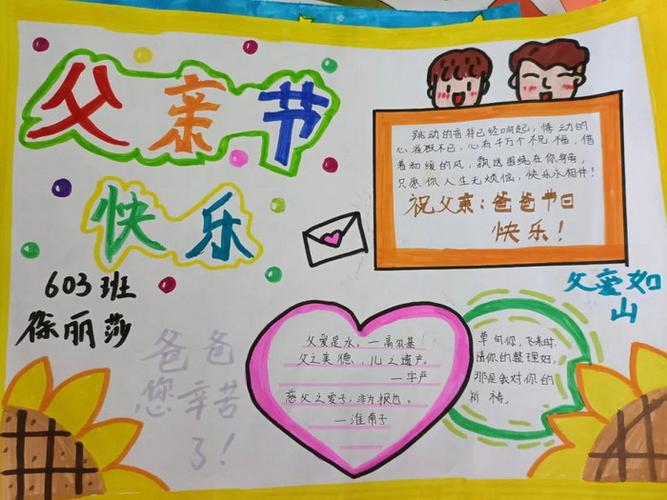 父亲节
快乐
603班
徐丽莎
爸爸
您辛苦
了！
跳动的音符已经响起，悸动的
心雀跃不已，心有千万个祝福，借
着和缓的风，飘送围绕在你身旁，
只愿你人生无烦恼，快乐永相伴！
祝父亲：爸爸节日
快乐！
父爱如
山
父爱是水。一高尔基
父之美德，儿之遗产。
一字严
慈父之爱子，非为报也。
一淮南子
草句你，飞来时，
请你的整理好，
那是会对你的
祈祷。